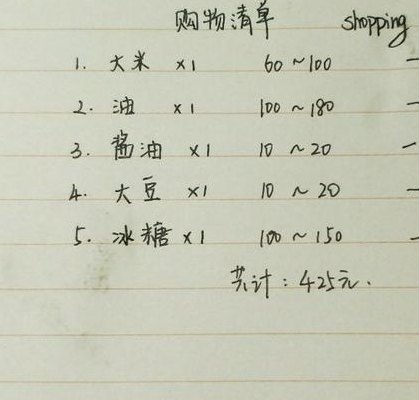 购物清单 shopping
1. 大米 ×1 60~100 —
2. 油 ×1 100~180 —
3. 酱油 ×1 10~20 —
4. 大豆 ×1 10~20 —
5. 冰糖 ×1 100~150 —
共计：425元.